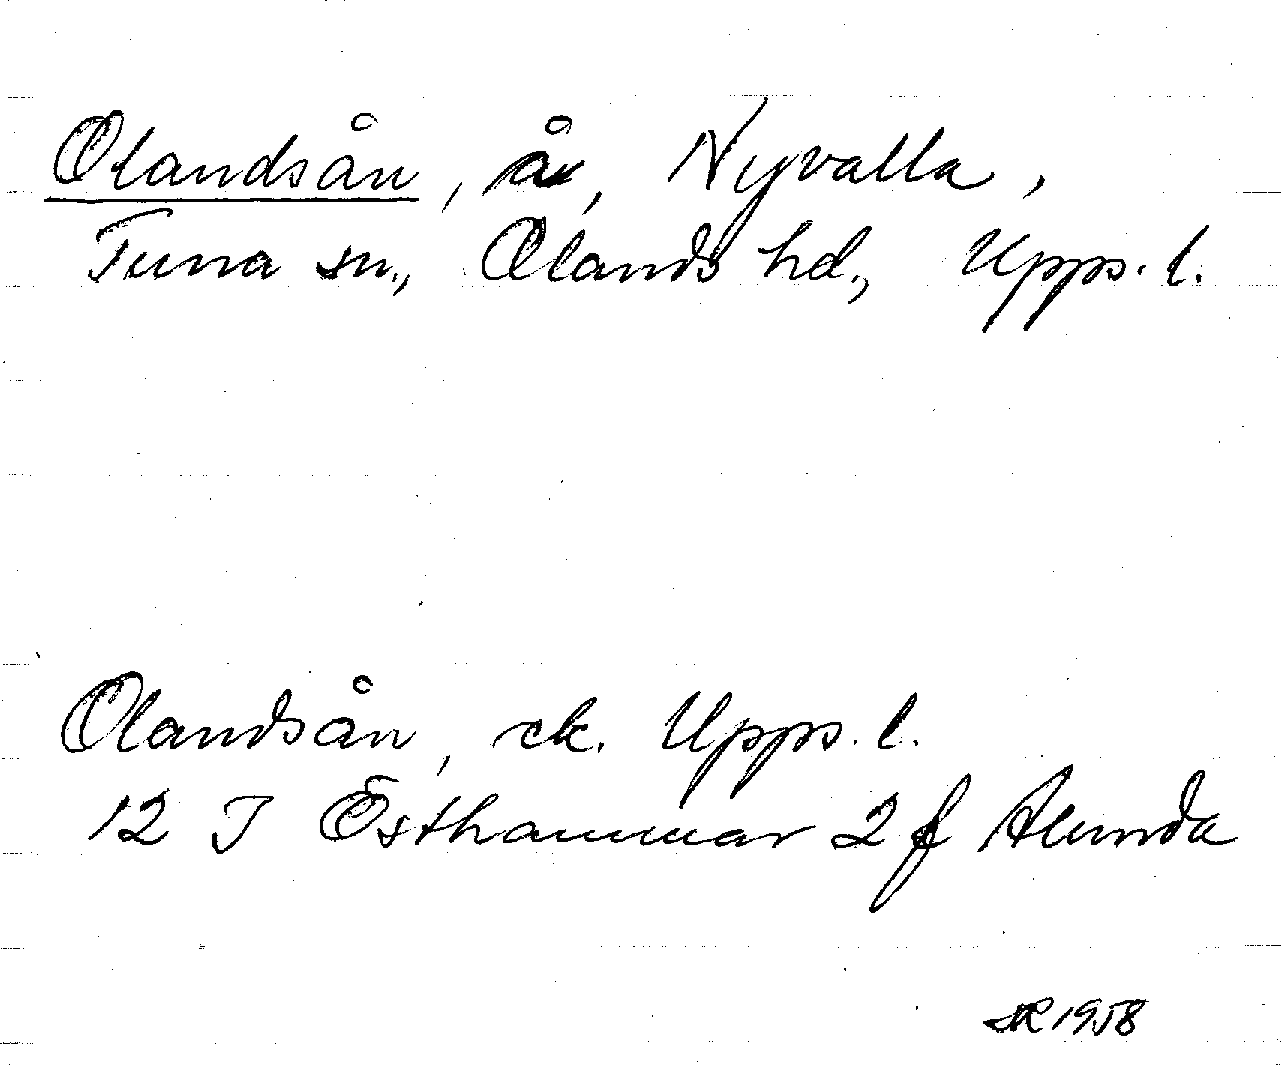 Olandsån, å, Nyvalla,
Tuna sn., Olands hd., Upps. l.
Olandsån, ek. Upps. l.
12 I Östhammar 2 f Alunda
SR 1958